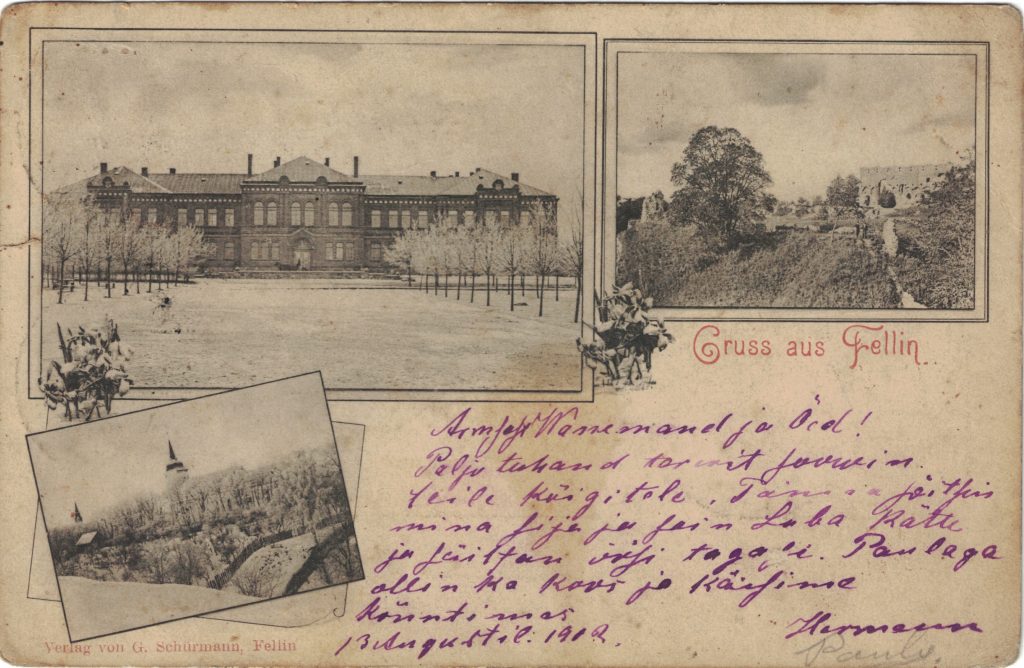 Gruss aus Fellin.
Wannemand ja Öed!
Palju tuhand terwit soowin
teile kõigitele,
mina sija ja sain Luba Kätte
ja sõittan öösi tagasi. Paulaga
ollin ka koos ja Käisime
kõnntimas
13 Augustil. 1902.
Hermann
Paula
Verlag von G. Schürmann, Fellin